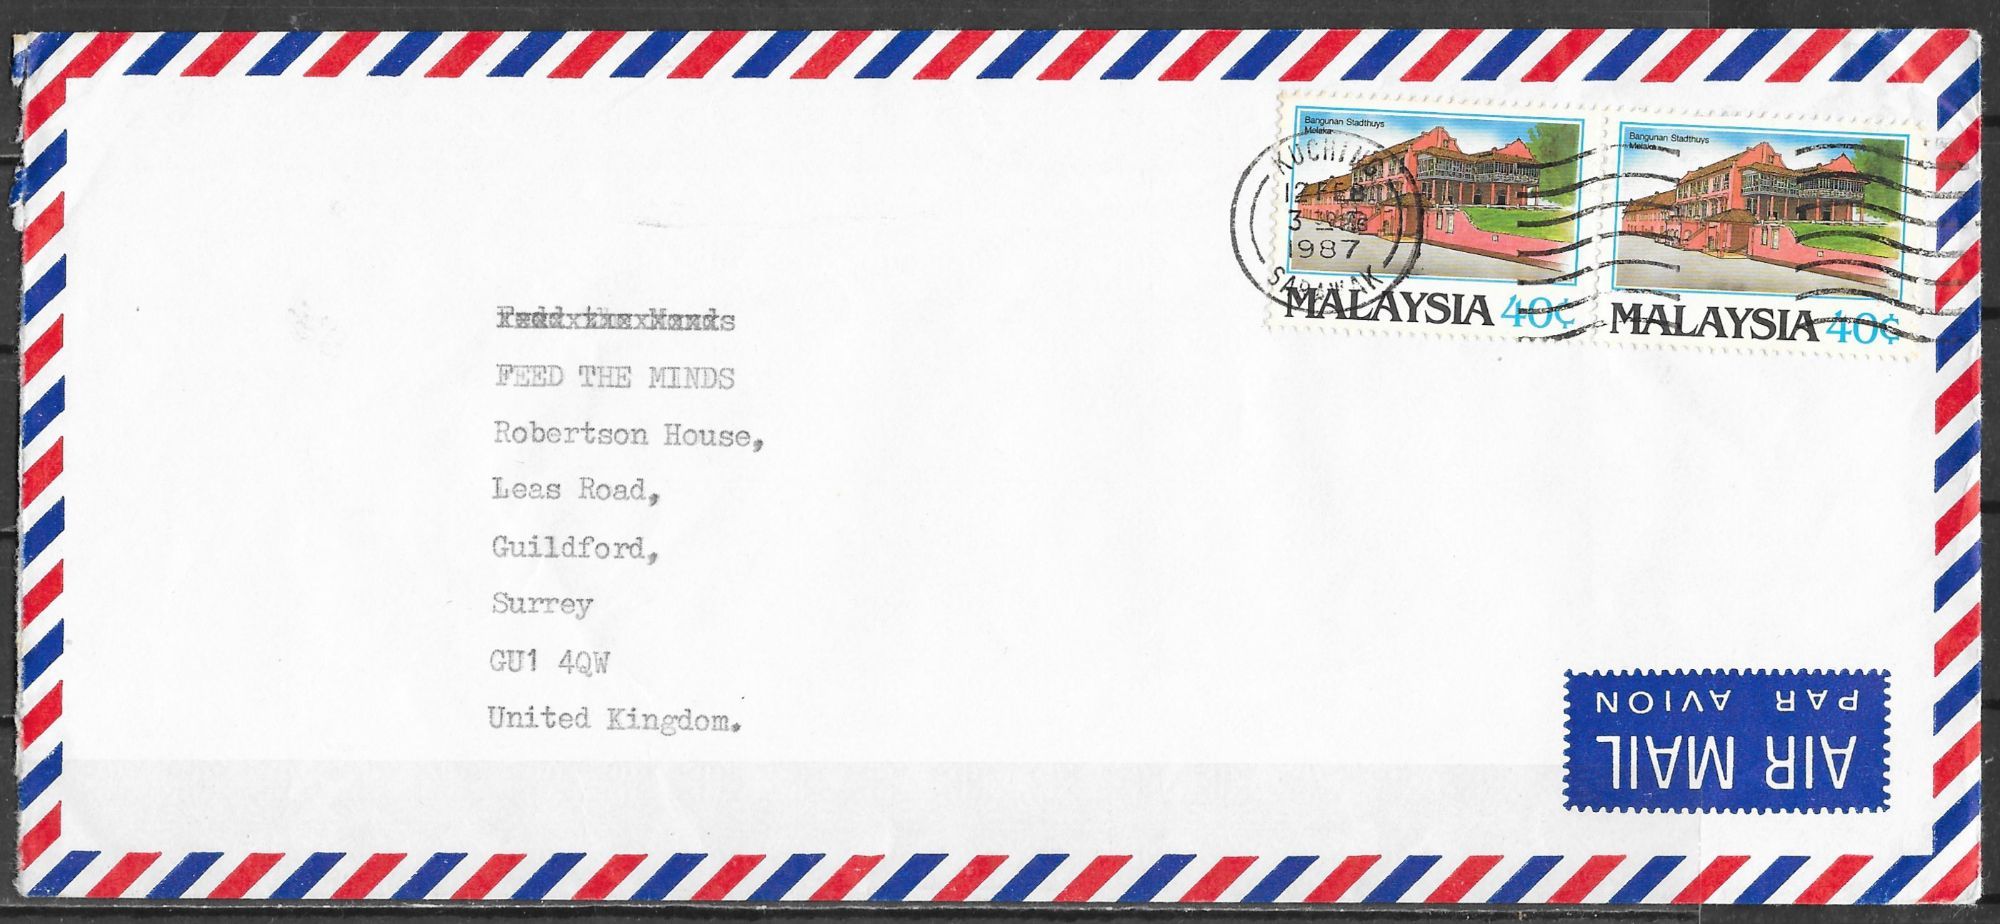 Bangunan Stadthuys
Melaka
MALAYSIA 40¢
Bangunan Stadthuys
Melaka
MALAYSIA 40¢
KUCHING
12 FEB
3
1987
SARAWAK
FEED THE MINDS
Robertson House,
Leas Road,
Guildford,
Surrey
GU1 4QW
United Kingdom.
AIR MAIL
PAR AVION